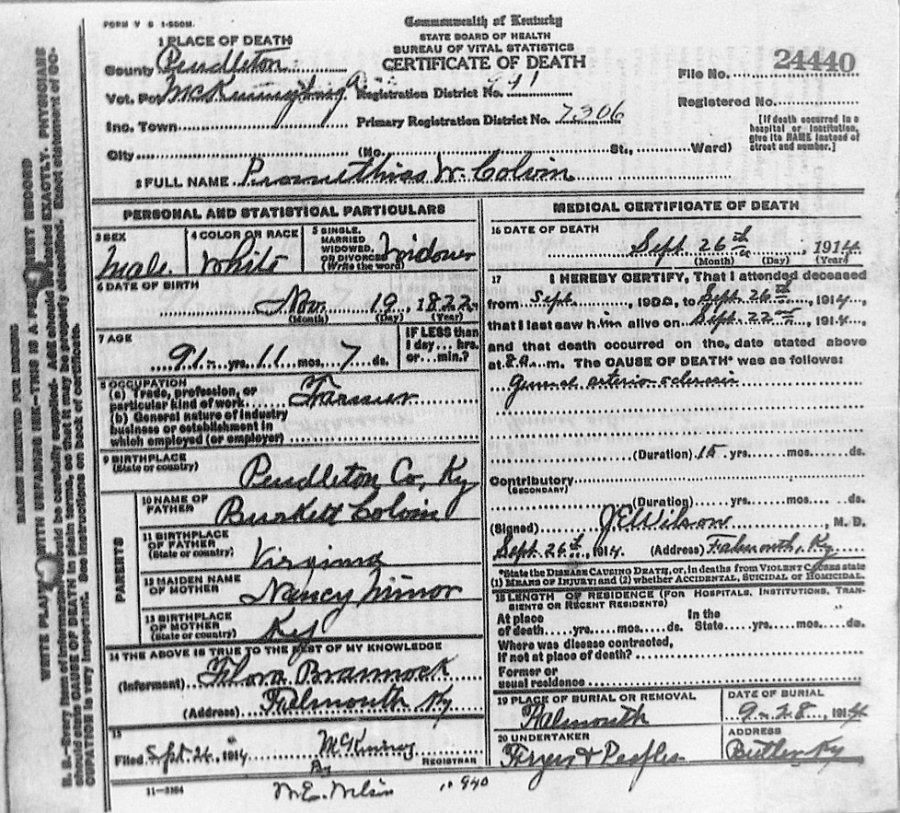 FORM V S 1-500M.
Commonwealth of Kentucky
STATE BOARD OF HEALTH
BUREAU OF VITAL STATISTICS
CERTIFICATE OF DEATH
1 PLACE OF DEATH
County Pendleton
Vot. Pct. Registration District No. 991
Inc. Town Primary Registration District No. 7306
City (No. St., Ward)
File No. 24440
Registered No.
[If death occurred in a
hospital or institution,
give its NAME instead of
street and number.]
2 FULL NAME W. Colvin
PERSONAL AND STATISTICAL PARTICULARS
3 SEX
Male
4 COLOR OR RACE
White
5 SINGLE,
MARRIED
WIDOWED,
OR DIVORCED
(Write the word)
Widower
6 DATE OF BIRTH
Nov. 19, 1822
(Month) (Day) (Year)
7 AGE
91 yrs. 11 mos. 7 ds.
IF LESS than
1 day... hrs.
or... min.?
8 OCCUPATION
(a) Trade, profession, or
particular kind of work Farmer
(b) General nature of industry
business or establishment in
which employed (or employer)
9 BIRTHPLACE
(State or country)
Pendleton Co, Ky
PARENTS
10 NAME OF
FATHER
Burkett Colvin
11 BIRTHPLACE
OF FATHER
(State or country)
Virginia
12 MAIDEN NAME
OF MOTHER
Nancy Minor
13 BIRTHPLACE
OF MOTHER
(State or country)
Ky
14 THE ABOVE IS TRUE TO THE BEST OF MY KNOWLEDGE
(Informant) Flora Brannock
(Address) Falmouth Ky
15
Filed Sept. 26, 1914 McKinney
REGISTRAR
By
W.E. Wilson
11-3184
MEDICAL CERTIFICATE OF DEATH
16 DATE OF DEATH
Sept. 26th, 1914
(Month) (Day) (Year)
17 I HEREBY CERTIFY, That I attended deceased
from Sept, to Sept. 26th, 1914,
that I last saw him alive on Sept. 22nd, 1914,
and that death occurred on the date stated above
at 8 a. m. The CAUSE OF DEATH* was as follows:
arterio-sclerosis
(Duration) 15 yrs. mos. ds.
Contributory
(SECONDARY)
(Duration) yrs. mos. ds.
(Signed) J E Wilson, M. D.
Sept. 26th, 1914. (Address) Falmouth, Ky.
*State the DISEASE CAUSING DEATH, or, in deaths from VIOLENT CAUSES state
(1) MEANS OF INJURY; and (2) whether ACCIDENTAL, SUICIDAL or HOMICIDAL.
18 LENGTH OF RESIDENCE (FOR HOSPITALS, INSTITUTIONS, TRAN-
SIENTS OR RECENT RESIDENTS)
At place In the
of death yrs. mos. ds. State yrs. mos. ds.
Where was disease contracted,
if not at place of death?
Former or
usual residence
19 PLACE OF BURIAL OR REMOVAL
Falmouth
DATE OF BURIAL
9-28, 1914
20 UNDERTAKER
Fryer & Peoples
ADDRESS
Butler Ky
MARGIN RESERVED FOR BINDING